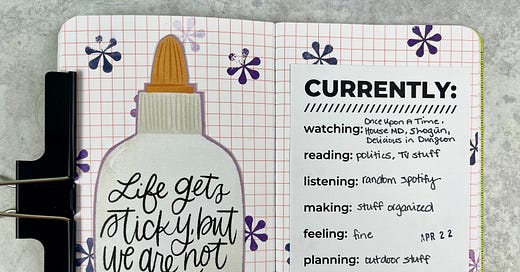 Life gets
sticky, but
we are not
CURRENTLY:
watching: Once Upon A Time,
House MD, Shogūn,
Delicious in Dungeon
reading: politics, TV stuff
listening: random spotify
making: stuff organized
feeling: fine
APR 22
planning: outdoor stuff